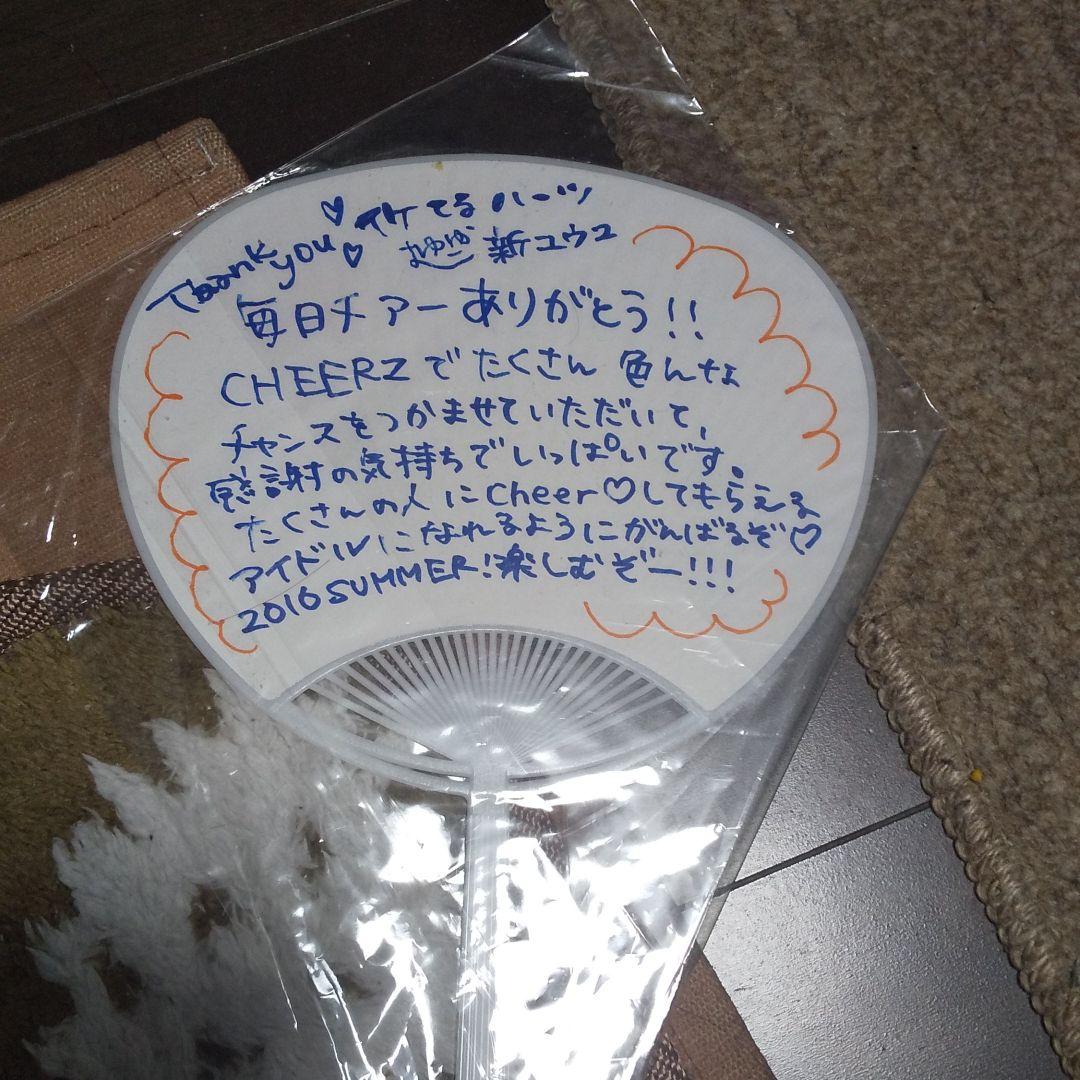 Thank you♡♡イケてるハーツ
新ユウユ
毎日チアーありがとう!!
CHEERZでたくさん 色んな
チャンスをつかませていただいて、
感謝の気持ちでいっぱいです。
たくさんの人にcheer♡してもらえる
アイドルになれるようにがんばるぞ♡
2016 SUMMER!楽しむぞー!!!